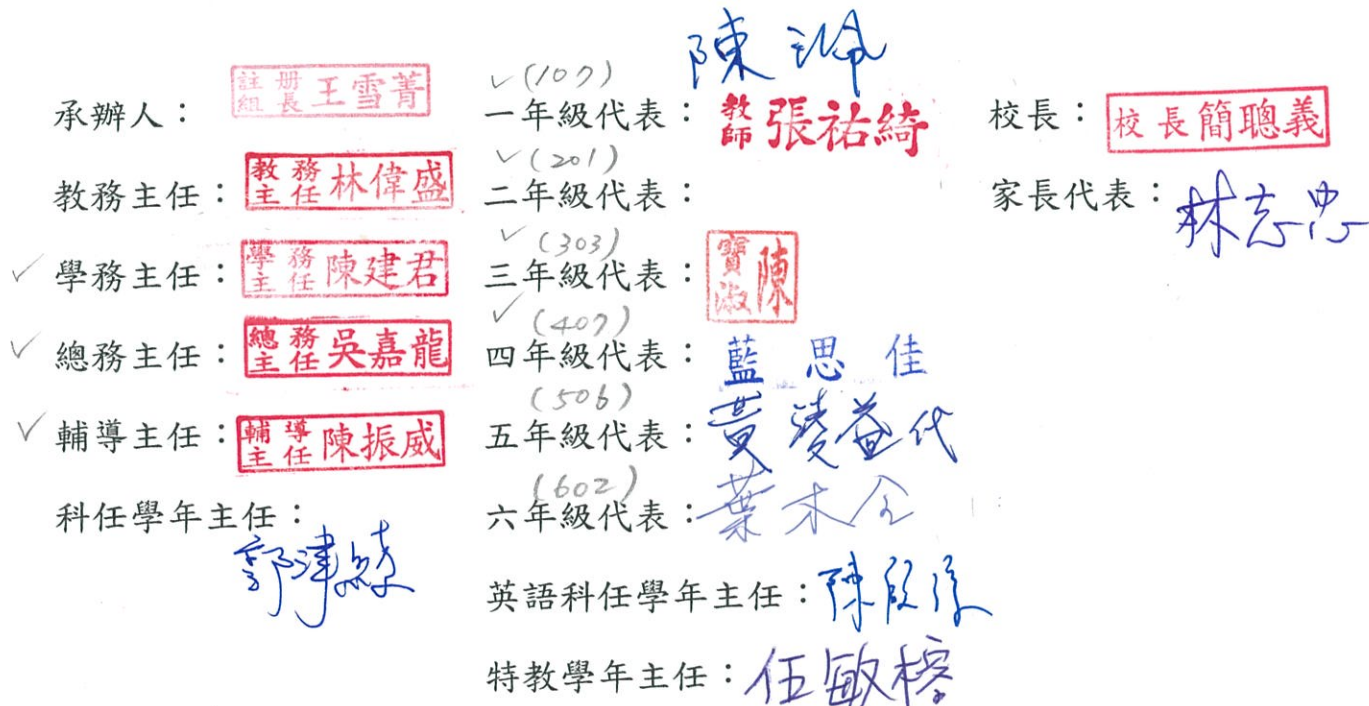 承辦人：註冊組長王雪菁
教務主任：教務主任林偉盛
✓學務主任：學務主任陳建君
✓總務主任：總務主任吳嘉龍
✓輔導主任：輔導主任陳振威
科任學年主任：
陳
✓(107)
一年級代表：教師張祐綺
✓(201)
二年級代表：
✓(303)
三年級代表：陳寶淑
✓(407)
四年級代表：藍思佳
(506)
五年級代表：黃淩益代
(602)
六年級代表：葉木全
英語科任學年主任：陳
特教學年主任：伍敏
校長：校長簡聰義
家長代表：林志忠